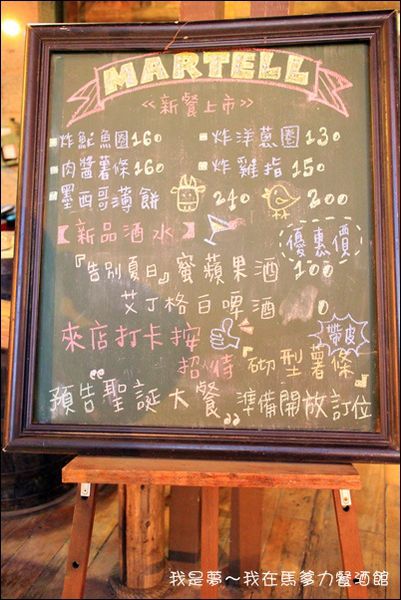 MARTELL
≪新餐上市≫
炸魷魚圈160 炸洋蔥圈130
肉醬薯條160 炸雞指150
墨西哥薄餅 240 200
【新品酒水】 優惠價
『告別夏日』蜜蘋果酒 100
艾丁格白啤酒 0
來店打卡按
招待 砌型薯條』 帶皮
預告聖誕大餐 準備開放訂位
我是夢～我在馬爹力餐酒館